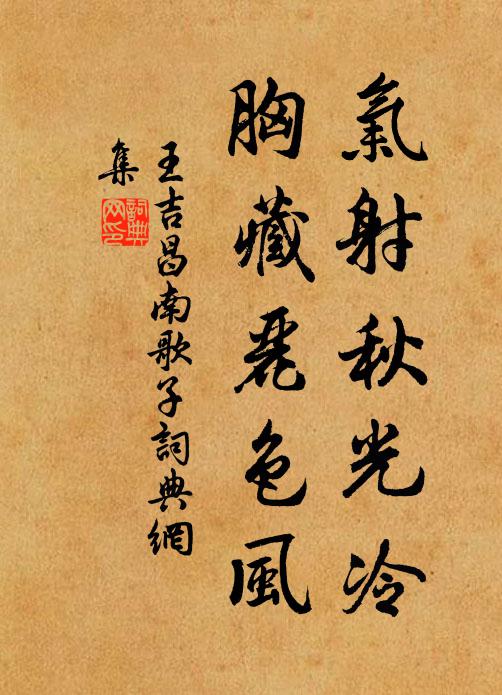 氣射秋光冷
胸藏麗色風
王吉昌南歌子詞典網
集
詞典
网印